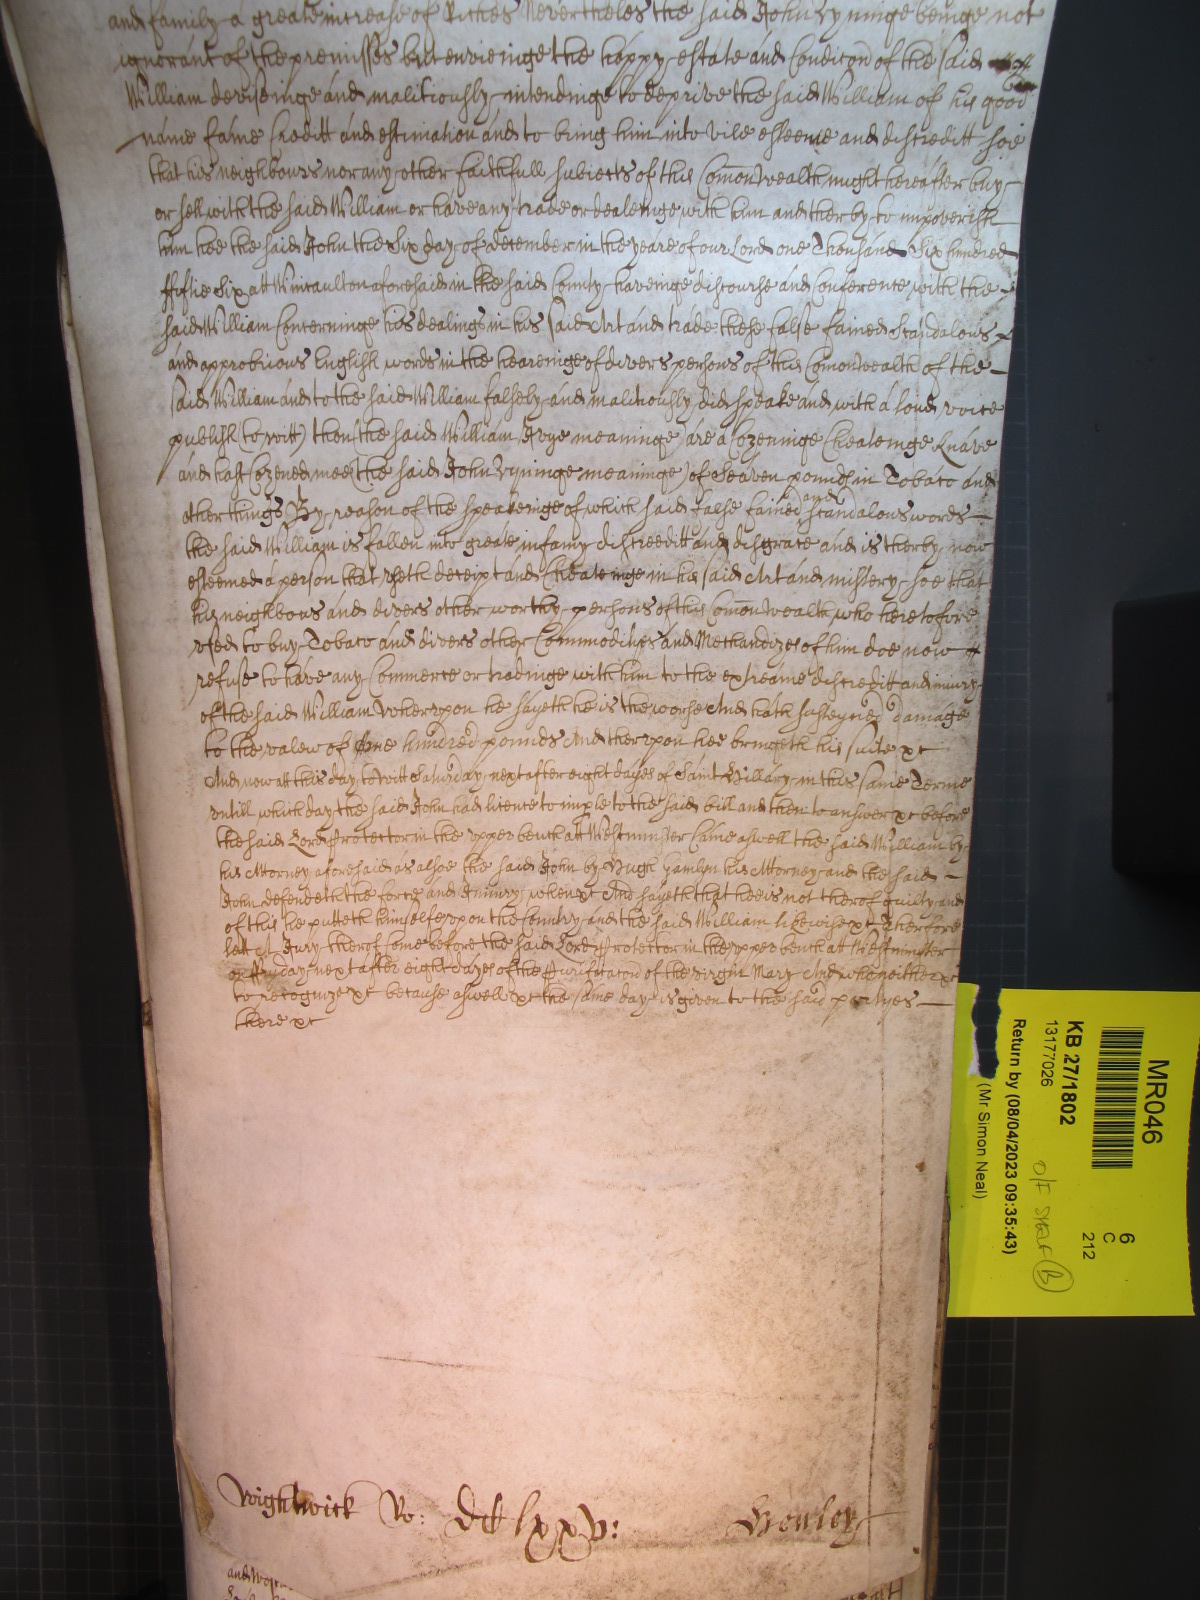 and family a greate increase of Riches Neverthelesse the said John Vyninge beinge not
ignorant of the premisses but envieinge the happy estate and Condicon of the said
William deviseinge and malitiously intendinge to deprive the said William of his good
name fame Creditt and estimation and to bring him into vile esteeme and discreditt soe
that his neighbours nor any other faithfull subiects of this Comonwealth might hereafter buy
or sell with the said William or have any trade or dealeinge with him and therby to impoverish
him hee the said John the Six day of december in the yeare of our Lord one Thousand Six hundred
fiftie Six att Wincaulton aforesaid in the said County haveinge discourse and Conference with the
said William Concerninge his dealings in his said Art and trade these false fained Scandalous
and approbrious English words in the heareinge of divers persons of this Comonwealth of the
said William and to the said William falsely and malitiously did speake and with a loud voice
publish (to witt) thou (the said William Ivye meaninge) are a Cozeninge Cheateinge Knave
and hast Cozened mee (the said John Vyninge meaninge) of Seaven pounds in Tobaco and
other things By reason of the speakeinge of which said false fained and scandalous words
the said William is fallen into greate infamy discreeditt and disgrace and is therby now
esteemed a person that useth deceipt and Cheateinge in his said Art and mistery soe that
his neighbours and divers other worthy persons of this Comonwealth who heretofore
used to buy Tobaco and divers other Commodityes and Merchandizes of him doe now
refuse to have any Commerce or tradinge with him to the extreame discreditt and iniury
of the said William Wherupon he sayeth he is the worse And hath susteyned damage
to the valew of One hundred pounds And therupon hee bringeth his suite &c
And now att this day to Witt Saturday next after eight dayes of Saint Hillary in this same Terme
untill which day the said John had licence to imple to the said bill and then to answer &c before
the said Lord Protector in the upper bench att Westminster Came aswell the said William by
his Attorney aforesaid as alsoe the said John by Hugh Hamlyn his Attorney and the said
John defendeth the force and Iniury when &c And sayeth that hee is not therof guilty and
of this he putteth himselfe upon the Country and the said William likewise &c Therfore
lett A Iury therof Come before the said Lord Protector in the upper bench att Westminster
on Fryday next after eight dayes of the Purificacon of the virgin Mary And who neither &c
to recognize &c because aswell &c the same day is given to the said partyes
there &c
Wightwick Ro: DCC lxxv: Henley
MR046
KB 27/1802
13177026
Return by (08/04/2023 09:35:43)
(Mr Simon Neal)
6
C
212
O/F SHELF (B)